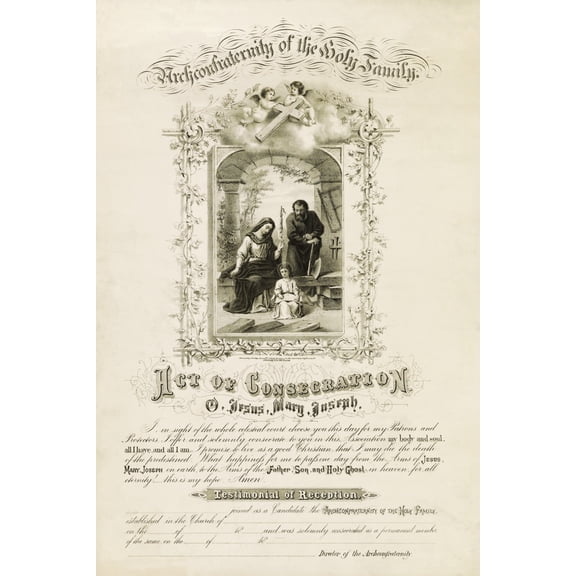 Archconfraternity of the Holy Family.
Act of Consecration
O, Jesus, Mary, Joseph,
I, in sight of the whole celestial court choose you this day for my Patrons and
Protectors. I offer and solemnly consecrate to you in this Association my body and soul,
all I have, and all I am. I promise to live as a good Christian, that I may die the death
of the predestined. What happiness for me to pass one day from the Arms of Jesus,
Mary, Joseph on earth to the Arms of the Father, Son, and Holy Ghost, in heaven for all
eternity! this is my hope. Amen.
Testimonial of Reception.
joined as a Candidate the Archconfraternity of the Holy Family,
established in the Church of
on the of 18 and was solemnly consecrated as a permanent member
of the same, on the of 18
Director of the Archconfraternity